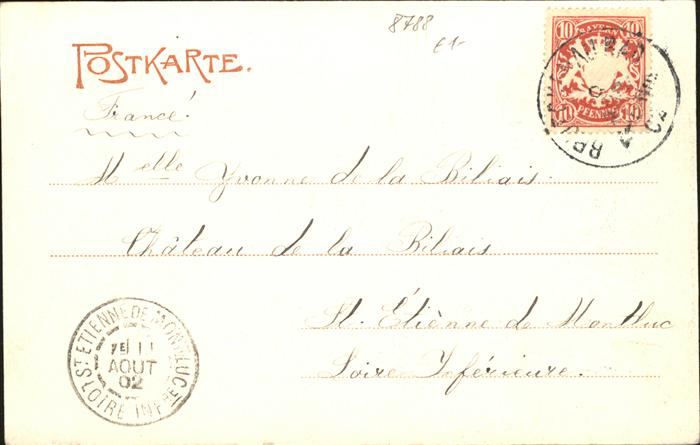 8788
€1-
POSTKARTE.
10 BAYERN 10
10 PFENNIG 10
Francé.
Melle Yvonne de la Biliais.
Château de la Biliais
St. Étiènne de Montluc
Loire Inférieure.
ST ETIENNE DE MONTLUC
7E 11
AOUT
02
LOIRE INFRE